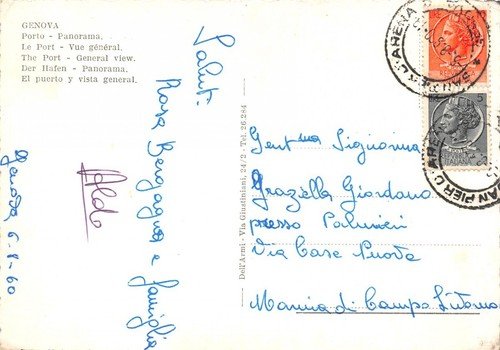 GENOVA
Porto - Panorama.
Le Port - Vue général.
The Port - General view.
Der Hafen - Panorama.
El puerto y vista general.
Saluti.
Rosa Bergagna e famiglia
Aldo
Genova 6-8-60
Dell'Armi - Via Giustiniani, 24/2 - Tel. 26.284
Gent.ma Signorina
Graziella Giordano
presso Palmieri
Via Case Nuove
Marina di Campo
SAMPIER D'ARENA
SAN PIER D'ARENA